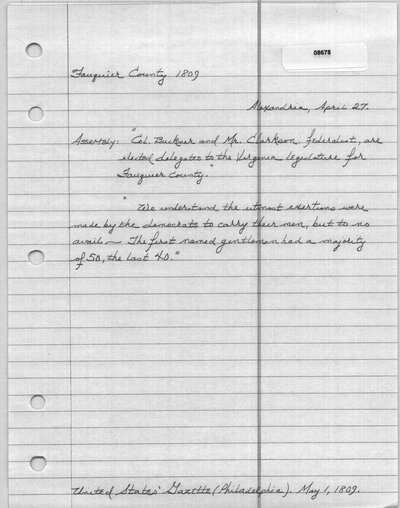 08678
Fauquier County 1809
Alexandria, April 27.
Assembly: "Col. Buckner and Mr. Clarkson federalist, are
elected delegates to the Virginia legislature for
Fauquier County."
" We understand the utmost exertions were
made by the democrats to carry their men, but to no
avail — The first named gentleman had a majority
of 50, the last 40."
United States' Gazette (Philadelphia). May 1, 1809.